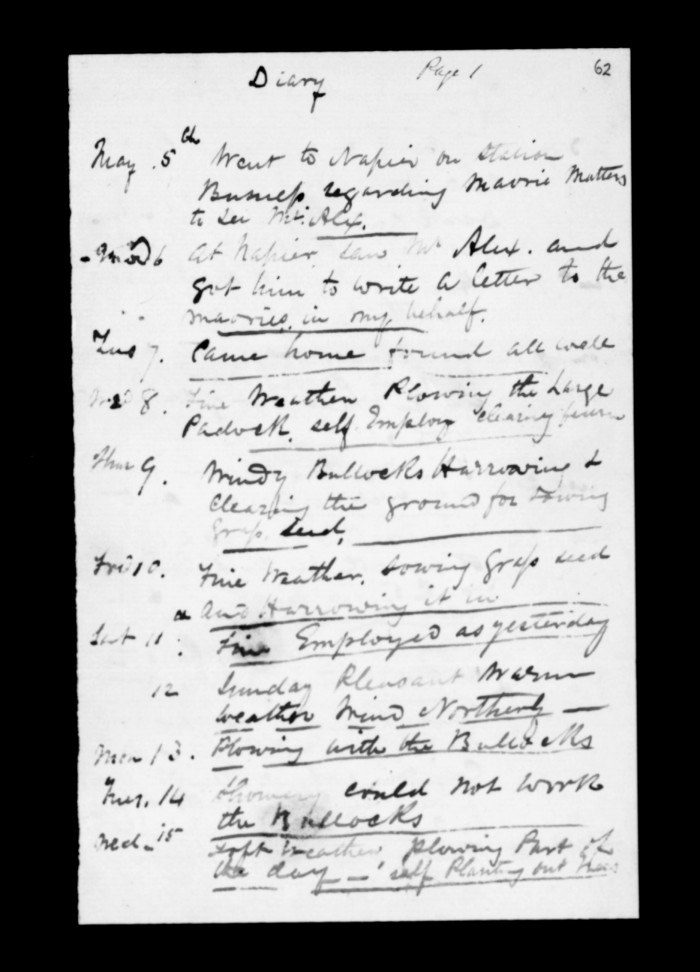 Diary Page 1 62
May 5th Went to Napier on Station
Business regarding Maorie Matters
to See Mr. Alex.
Mond 6 at Napier saw Mr Alex. and
got him to write a letter to the
maories in my behalf.
Tus 7. Came home found all well
Wed 8. Fine Weather Plowing the Large
Padock, self Employ clearing
Thur 9. Windy Bullocks Harrowing &
Clearing the ground for sowing
Grass seed,
Frid 10. Fine Weather. Sowing Grass seed
and Harrowing it in
Sat 11. Fine Employed as yesterday
12 Sunday Pleasant Warm
weather Wind Northerly —
Mon 13. Plowing with the Bullocks
Tues. 14 Showery could not work
the Bullocks
Wed. 15 Soft Weather plowing Part of
the day — self Planting out Trees